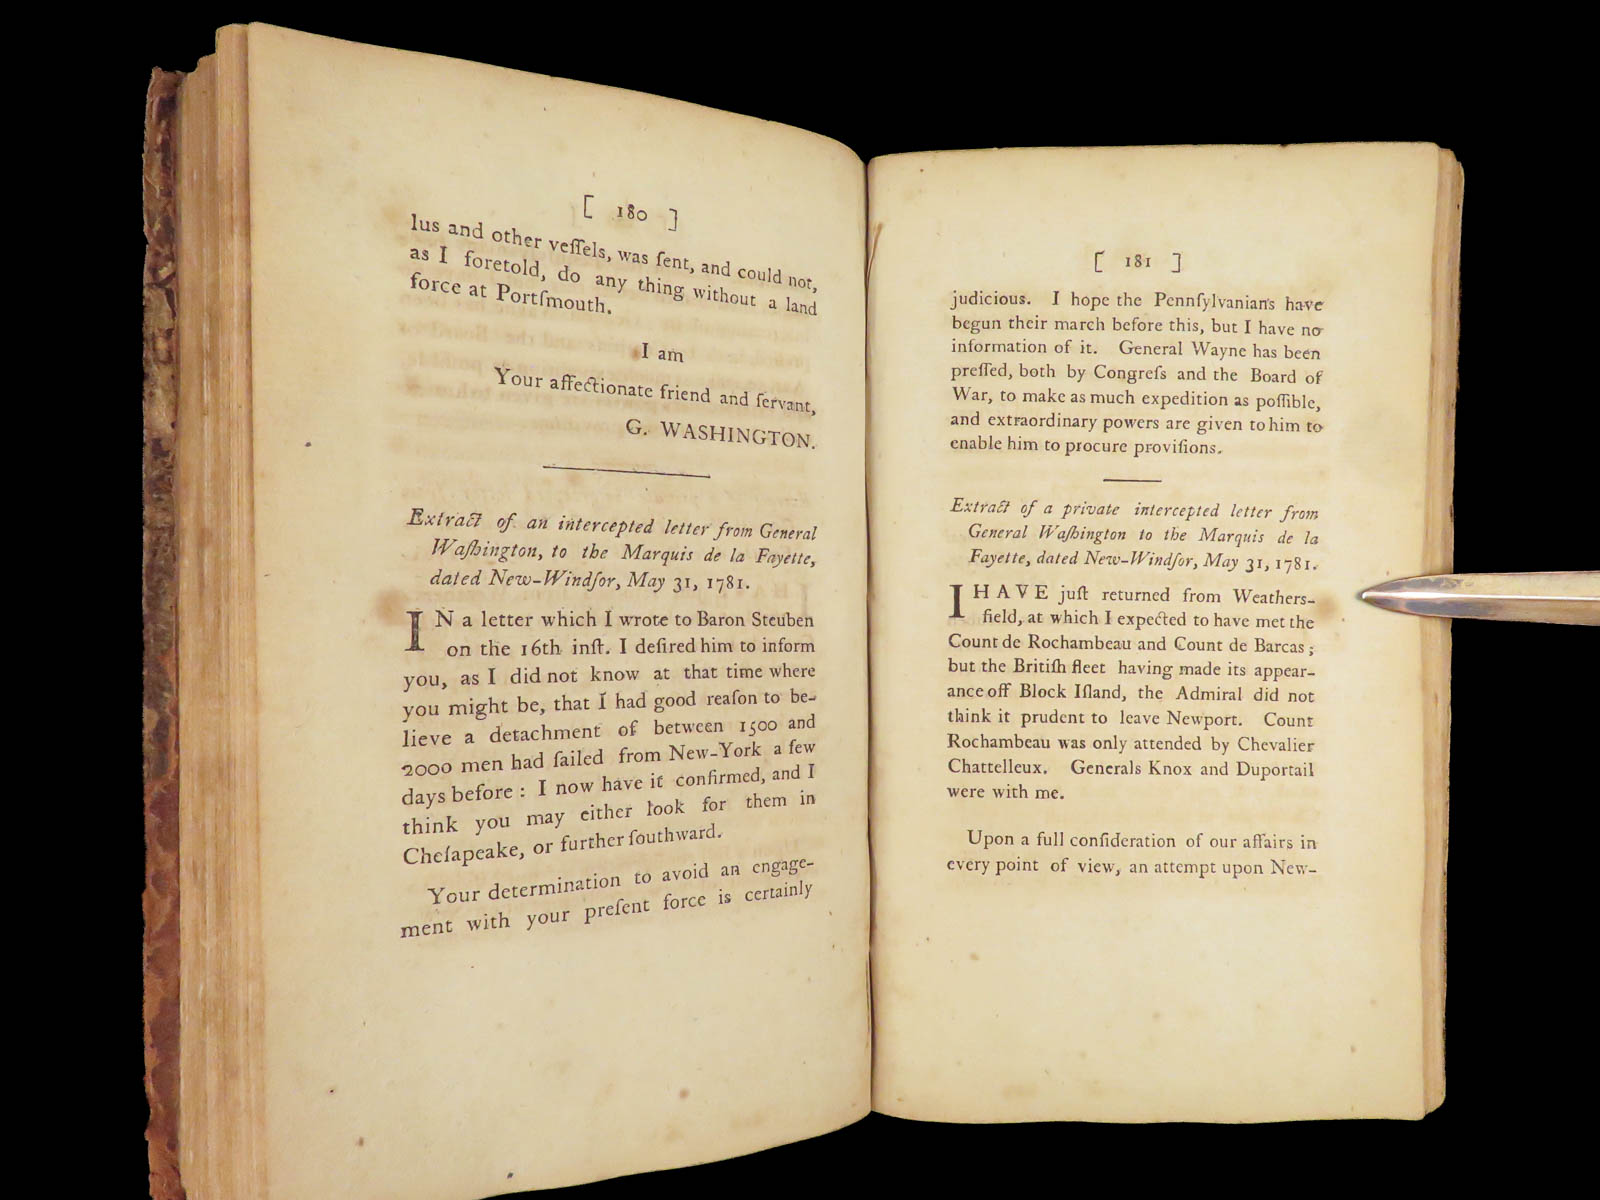 [ 180 ]
lus and other veſſels, was ſent, and could not,
as I foretold, do any thing without a land
force at Portſmouth.
I am
Your affectionate friend and ſervant,
G. WASHINGTON.
Extract of an intercepted letter from General
Waſhington, to the Marquis de la Fayette,
dated New-Windſor, May 31, 1781.
IN a letter which I wrote to Baron Steuben
on the 16th inſt. I deſired him to inform
you, as I did not know at that time where
you might be, that I had good reaſon to be-
lieve a detachment of between 1500 and
2000 men had ſailed from New-York a few
days before : I now have it confirmed, and I
think you may either look for them in
Cheſapeake, or further ſouthward.
Your determination to avoid an engage-
ment with your preſent force is certainly
[ 181 ]
judicious. I hope the Pennſylvanians have
begun their march before this, but I have no
information of it. General Wayne has been
preſſed, both by Congreſs and the Board of
War, to make as much expedition as poſſible,
and extraordinary powers are given to him to
enable him to procure proviſions.
Extract of a private intercepted letter from
General Waſhington to the Marquis de la
Fayette, dated New-Windſor, May 31, 1781.
I HAVE juſt returned from Weathers-
field, at which I expected to have met the
Count de Rochambeau and Count de Barcas ;
but the Britiſh fleet having made its appear-
ance off Block Iſland, the Admiral did not
think it prudent to leave Newport. Count
Rochambeau was only attended by Chevalier
Chattelleux. Generals Knox and Duportail
were with me.
Upon a full conſideration of our affairs in
every point of view, an attempt upon New-